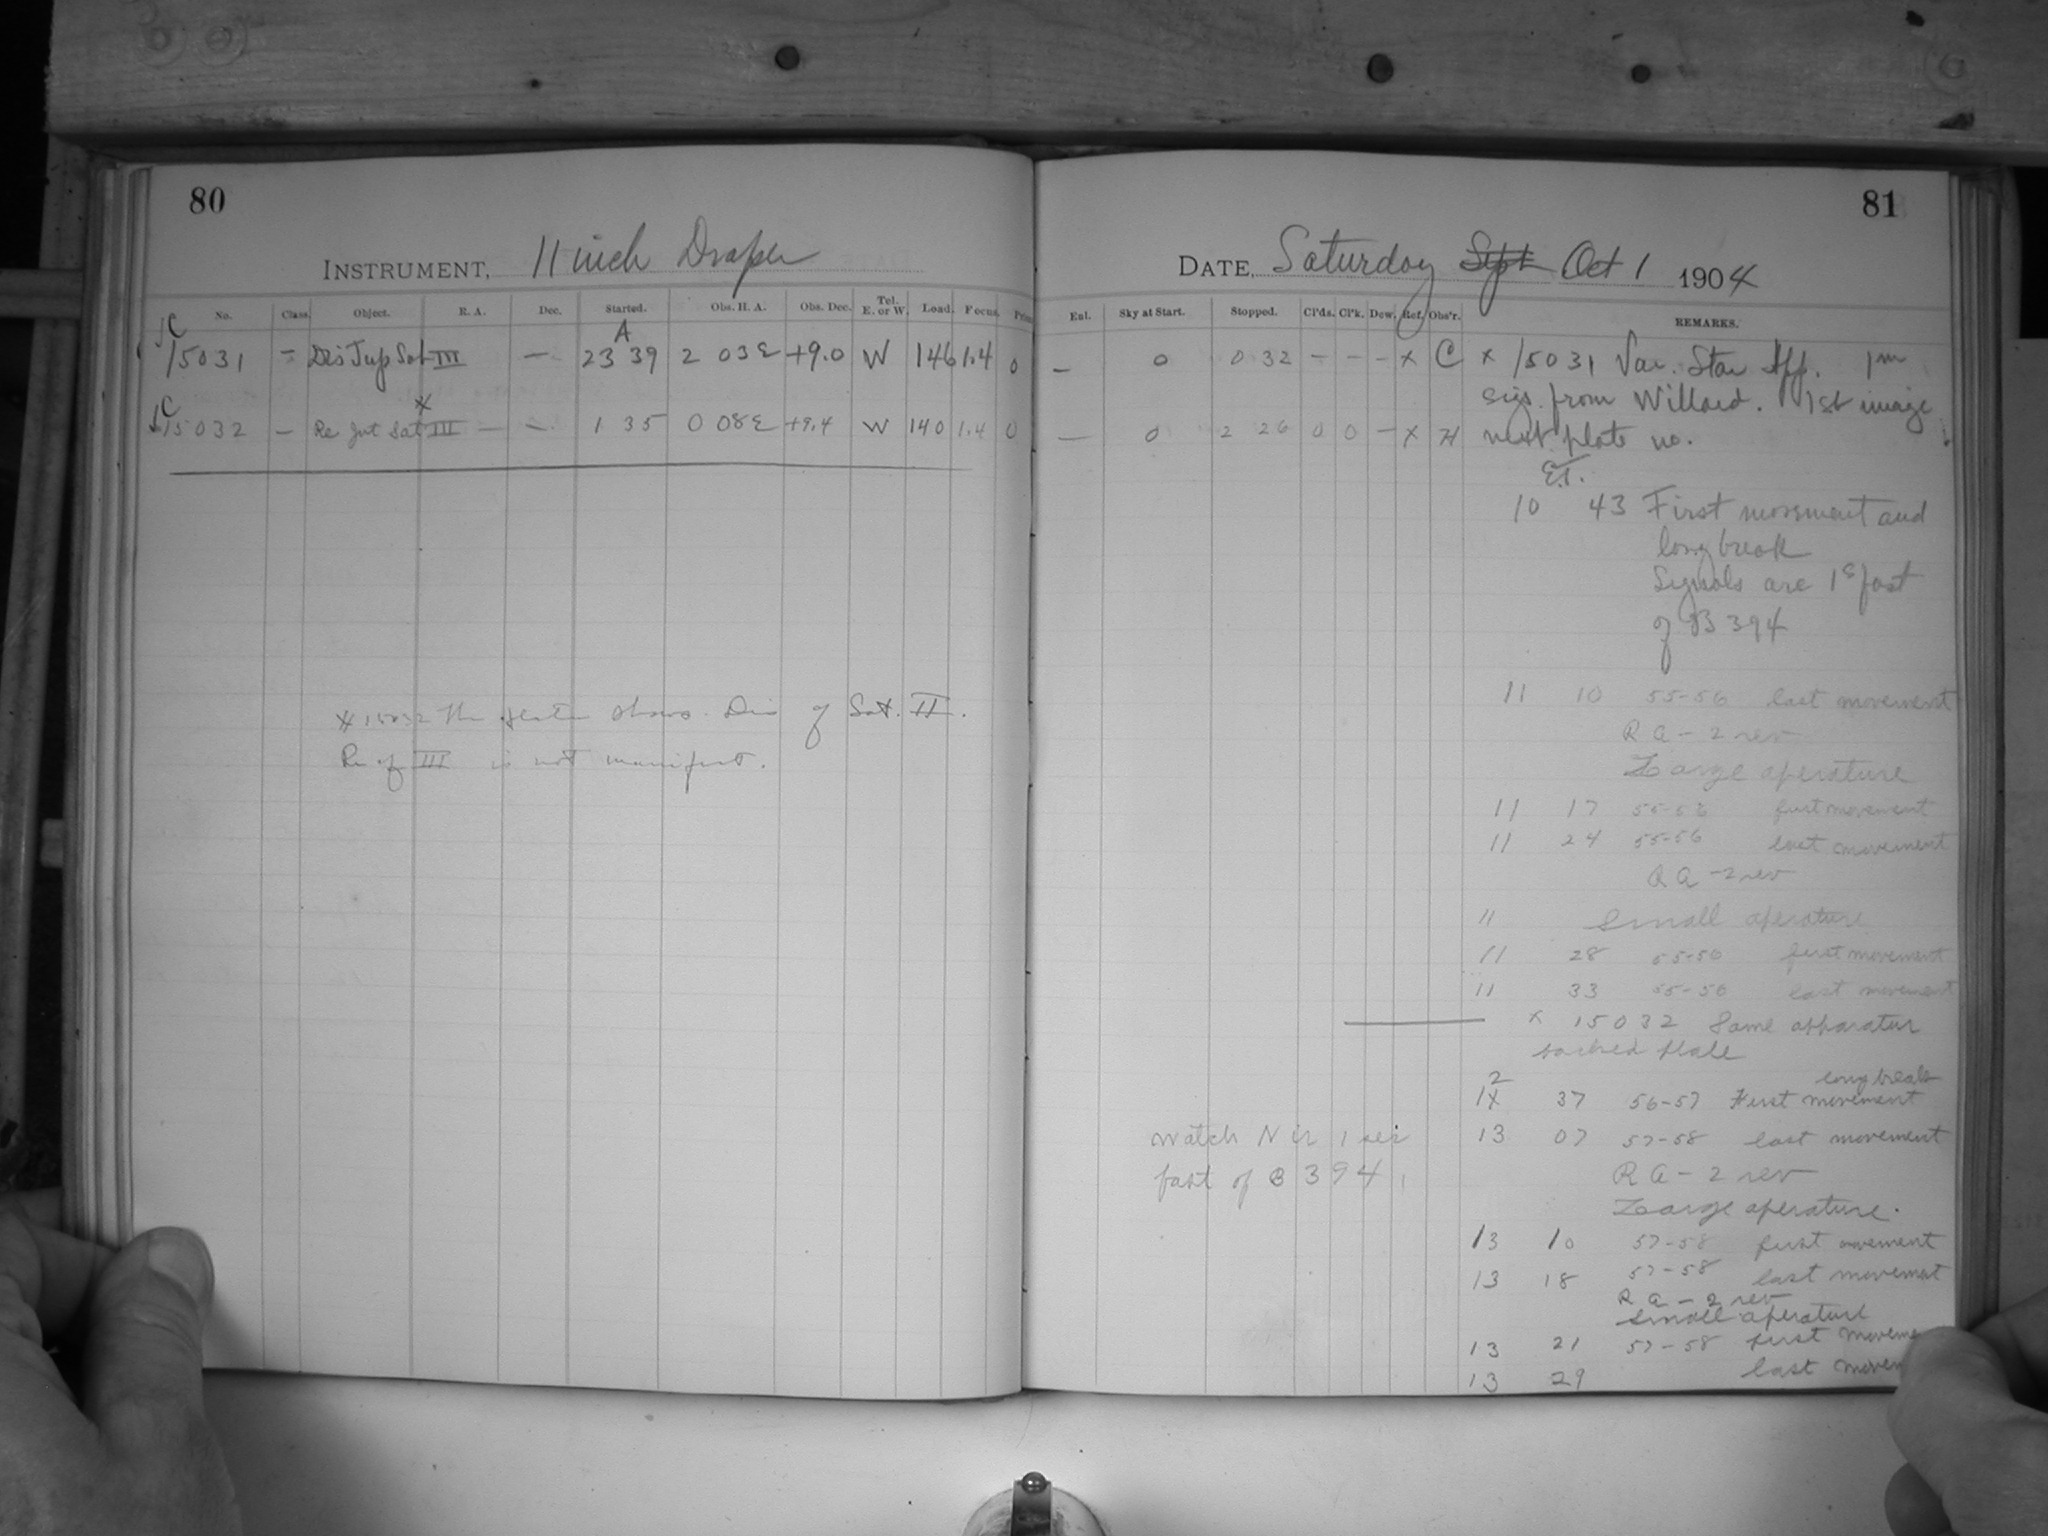 80
INSTRUMENT, 11 inch Draper
No. Class. Object. R. A. Dec. Started. Obs. H. A. Obs. Dec. Tel. E. or W. Load. Focus.
A
JC
15031 = Dis Jup Sat III — 23 39 2 03 E +9.0 W 146 1.4 0
C x
15032 — Re Jut Sat III — — 1 35 0 08 E +9.4 W 140 1.4 0
x 15032 The shows Dis of Sat. II.
Re of III is not manifest.
81
DATE, Saturday Sept Oct 1 1904
Enl. Sky at Start. Stopped. Cl'ds. Cl'k. Dew. Ref. Obs'r. REMARKS.
— 0 0 32 — — — x C x 15031 Var. Star App. 1m
sigs. from Willard. 1st image
— 0 2 26 0 0 — x H next plate no.
E.T.
10 43 First movement and
long break
Signals are 1s fast
of B 394
11 10 55-56 last movement
R A - 2 rev
Large aperature
11 17 55-56 first movement
11 24 55-56 last movement
R A - 2 rev
11 Small aperature
11 28 55-56 first movement
11 33 55-56 last movement
x 15032 Same apparatus
backed plate
long break
2
1X 37 56-57 First movement
Watch N is 1 sec 13 07 57-58 last movement
fast of B 394 R A - 2 rev
Large aperature.
13 10 57-58 first movement
13 18 57-58 last movement
R A - 2 rev
Small aperature
13 21 57-58 first moveme
13 29 last movem